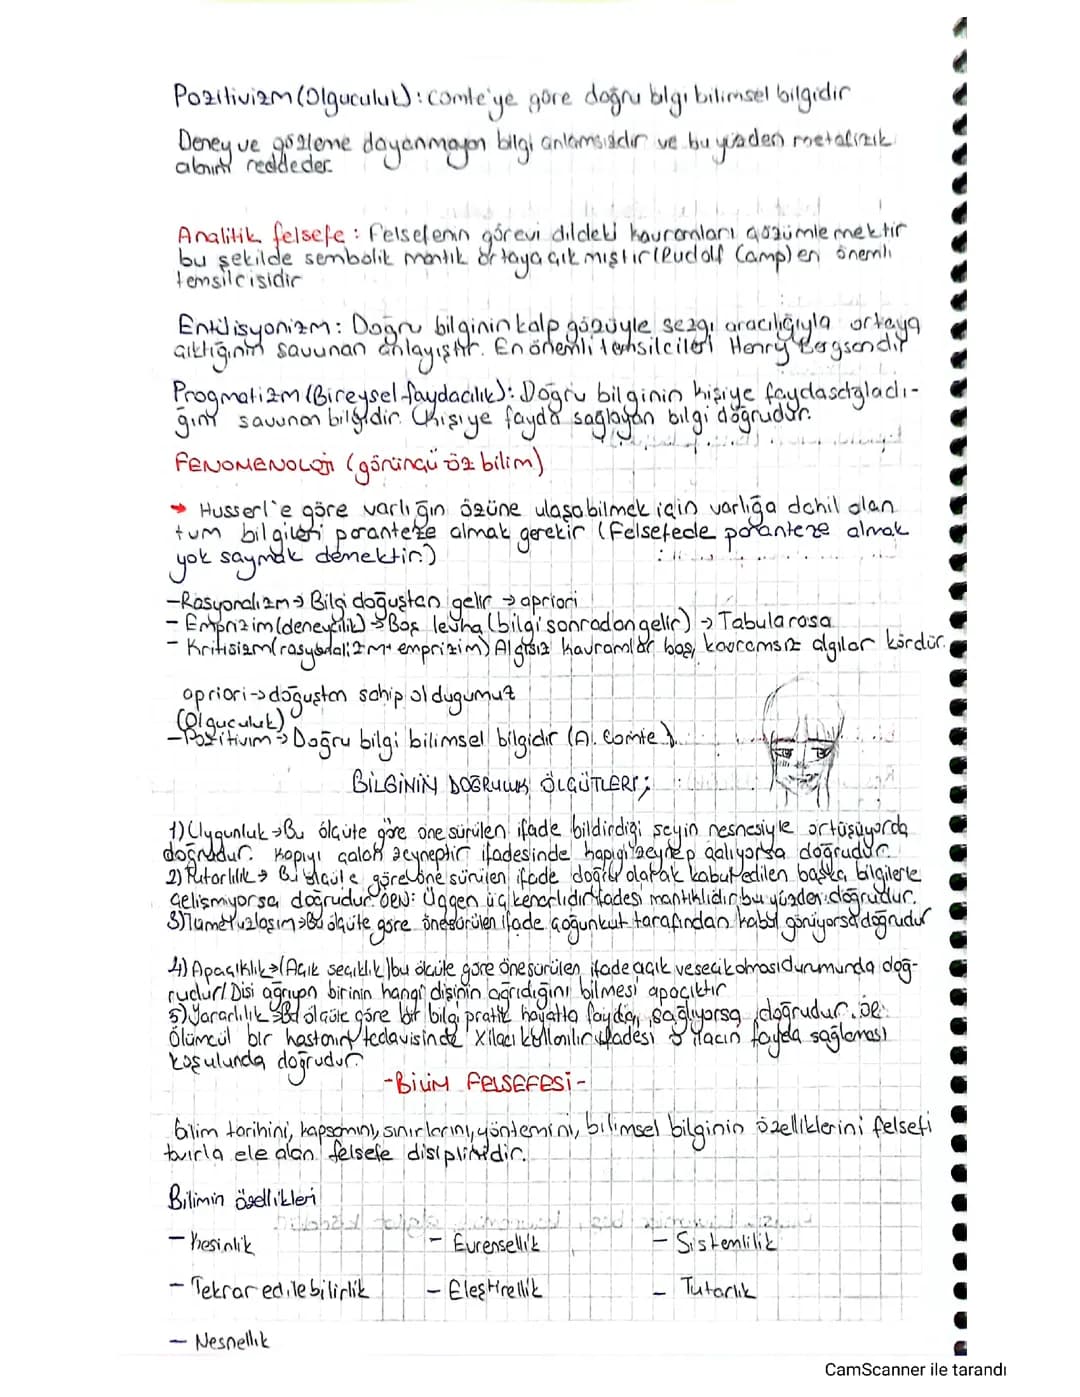 Pozitivizm (Olguculuk): Comte'ye göre doğru bilgi bilimsel bilgidir
Deney ve gözleme dayanmayan bilgi anlamsızdır ve bu yüzden metafizik
reddeder.
Analitik felsefe: Felsefenin görevi dildeki kavramları çözümlemektir
bu şekilde sembolik mantık ortaya çıkmıştır (Rudolf Camp) en önemli
temsilcisidir
Entüisyonizm: Doğru bilginin kalp gözüyle sezgi aracılığıyla ortaya
çıktığının savunan anlayıştır. En önemli temsilcileri Henry Bergsondır
Pragmatizm (Bireysel faydacılık): Doğru bilginin kişiye faydasağladı-
ğını savunan bilgidir. Kişiye fayda sağlayan bilgi doğrudur.
FENOMENOLOJİ (görüngü öz bilim)
→ Husserl'e göre varlığın özüne ulaşabilmek için varlığa dahil olan
tum bilgileri paranteze almak gerekir (Felsefede paranteze almak
yok saymak demektir.)
-Rasyonalizm → Bilgi doğuştan gelir → apriori
- Emprizim (deneycilik) → Boş levha (bilgi sonradan gelir) → Tabula rasa
- Kritisizm (rasyonalizm + emprizim) Algısız kavramlar boş, kavramsız algılar kördür.
apriori → doğuştan sahip oldugumuz
(Olguculuk)
-Pozitivim → Doğru bilgi bilimsel bilgidir (A. Comte).
BİLGİNİN DOĞRULUK ÖLÇÜTLERİ;
1) Uygunluk → Bu ölçüte göre one sürülen ifade bildirdiği seyin nesnesiyle örtüşüyorda
doğrudur. Kapıyı çalan zeyneptir ifadesinde kapıyı zeynep çalıyorsa doğrudur.
2) Tutarlılık → Bu ölçüte göre öne sürülen ifade doğru olarak kabul edilen başka bilgilerle
çelişmiyorsa doğrudur. ÖRN: Üçgen üç kenarlıdır ifadesi mantıklıdır bu yüzden doğrudur.
3) Tümel uzlaşım → Bu ölçüte göre öne sürülen ifade çoğunluk tarafından kabul görüyorsa doğrudur
4) Apaçıklık → (Açık seçiklik) bu ölçüte göre öne sürülen ifade açık ve seçik olması durumunda doğ-
rudur. Disi ağrıyan birinin hangi dişinin ağrıdığını bilmesi apaçıktır
5) Yararlılık → Bu ölçüte göre bir bilgi pratik hayatta fayda sağlıyorsa doğrudur. ör:
Ölümcül bir hastanın tedavisinde X ilacı kullanılır ifadesi o ilacın fayda sağlaması
koşulunda doğrudur.
-BİLİM FELSEFESİ-
bilim tarihini, kapsamını, sınırlarını, yöntemini, bilimsel bilginin özelliklerini felsefi
tavırla ele alan felsefe disiplinidir.
Bilimin özellikleri
- Kesinlik - Evrensellik - Sistemlilik
- Tekrar edilebilirlik - Eleştirellik - Tutarlık
- Nesnellik
CamScanner ile tarandı